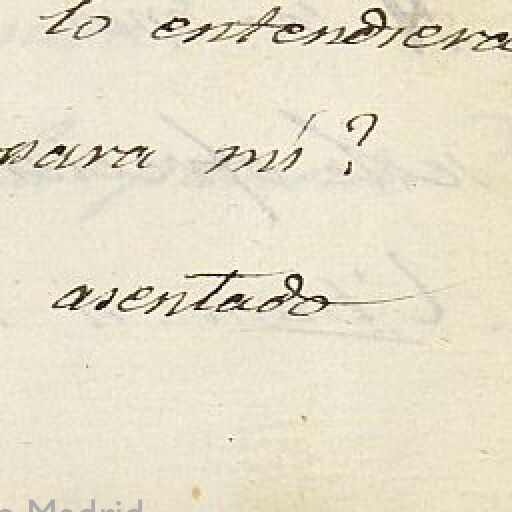 lo entendiera
para mí?
asentado
Madrid